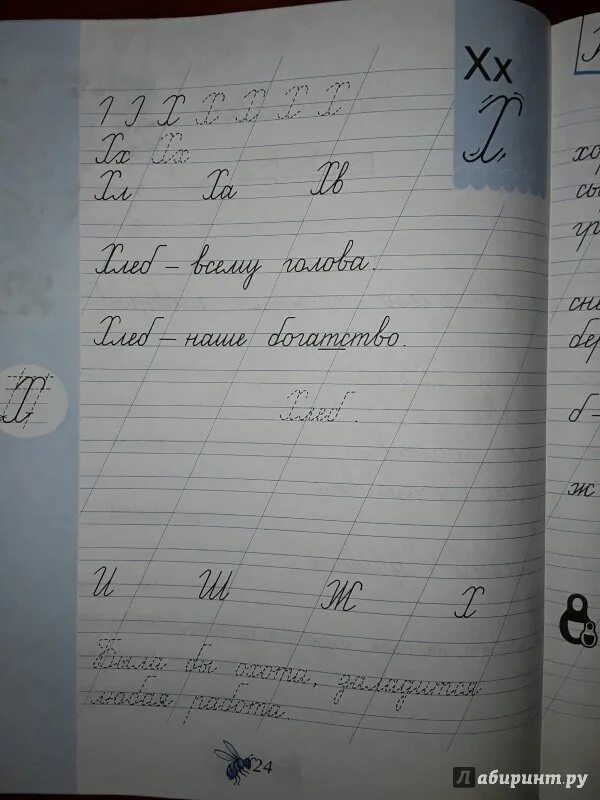 Хх
Х
Х Х Х Х Х
Хх Хх
Хл Ха Хв
Хлеб – всему голова.
Хлеб – наше богатство.
Хлеб.
Х
И Ш Ж Х
Была бы охота, заладится
любая работа.
24
сы
сне
бер
б –
ж
Лабиринт.ру